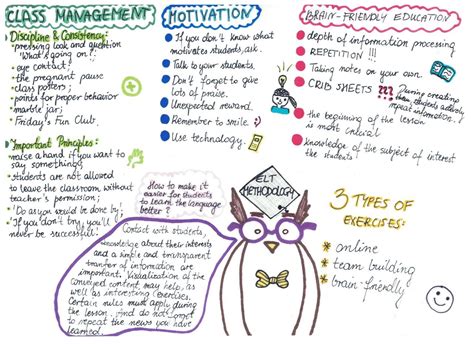 CLASS MANAGEMENT
Discipline & Consistency:
• pressing look and question
"What's going on?";
• eye contact;
• the pregnant pause
• class posters;
• points for proper behavior
• marble jar;
• Friday's Fun Club.
Important Principles:
• raise a hand if you want to
say something;
• students are not allowed
to leave the classroom without
teacher's permission;
• 'Do as you would be done by;
• 'If you don't try, you'll
never be successful!
MOTIVATION
If you don't know what
motivates students, ask.
Talk to your students.
Don't forget to give
lots of praise.
Unexpected reward.
Remember to smile.
Use technology.
BRAIN-FRIENDLY EDUCATION
depth of information processing
REPETITION!!!
Taking notes on your own.
CRIB SHEETS ??? During creating
them, students actively
repeat information!
the beginning of the lesson
is most crucial!
knowledge of the subject of interest
the students
How to make it
easier for students
to learn the language
better?
Contact with students,
knowledge about their interests
and a simple and transparent
transfer of information are
important. Visualization of the
conveyed content may help, as
well as interesting exercises.
Certain rules must apply during
the lesson. And do not forget
to repeat the news you have
learned.
ELT
METHODOLOGY
3 TYPES OF
EXERCISES:
* online
* team building
* brain-friendly